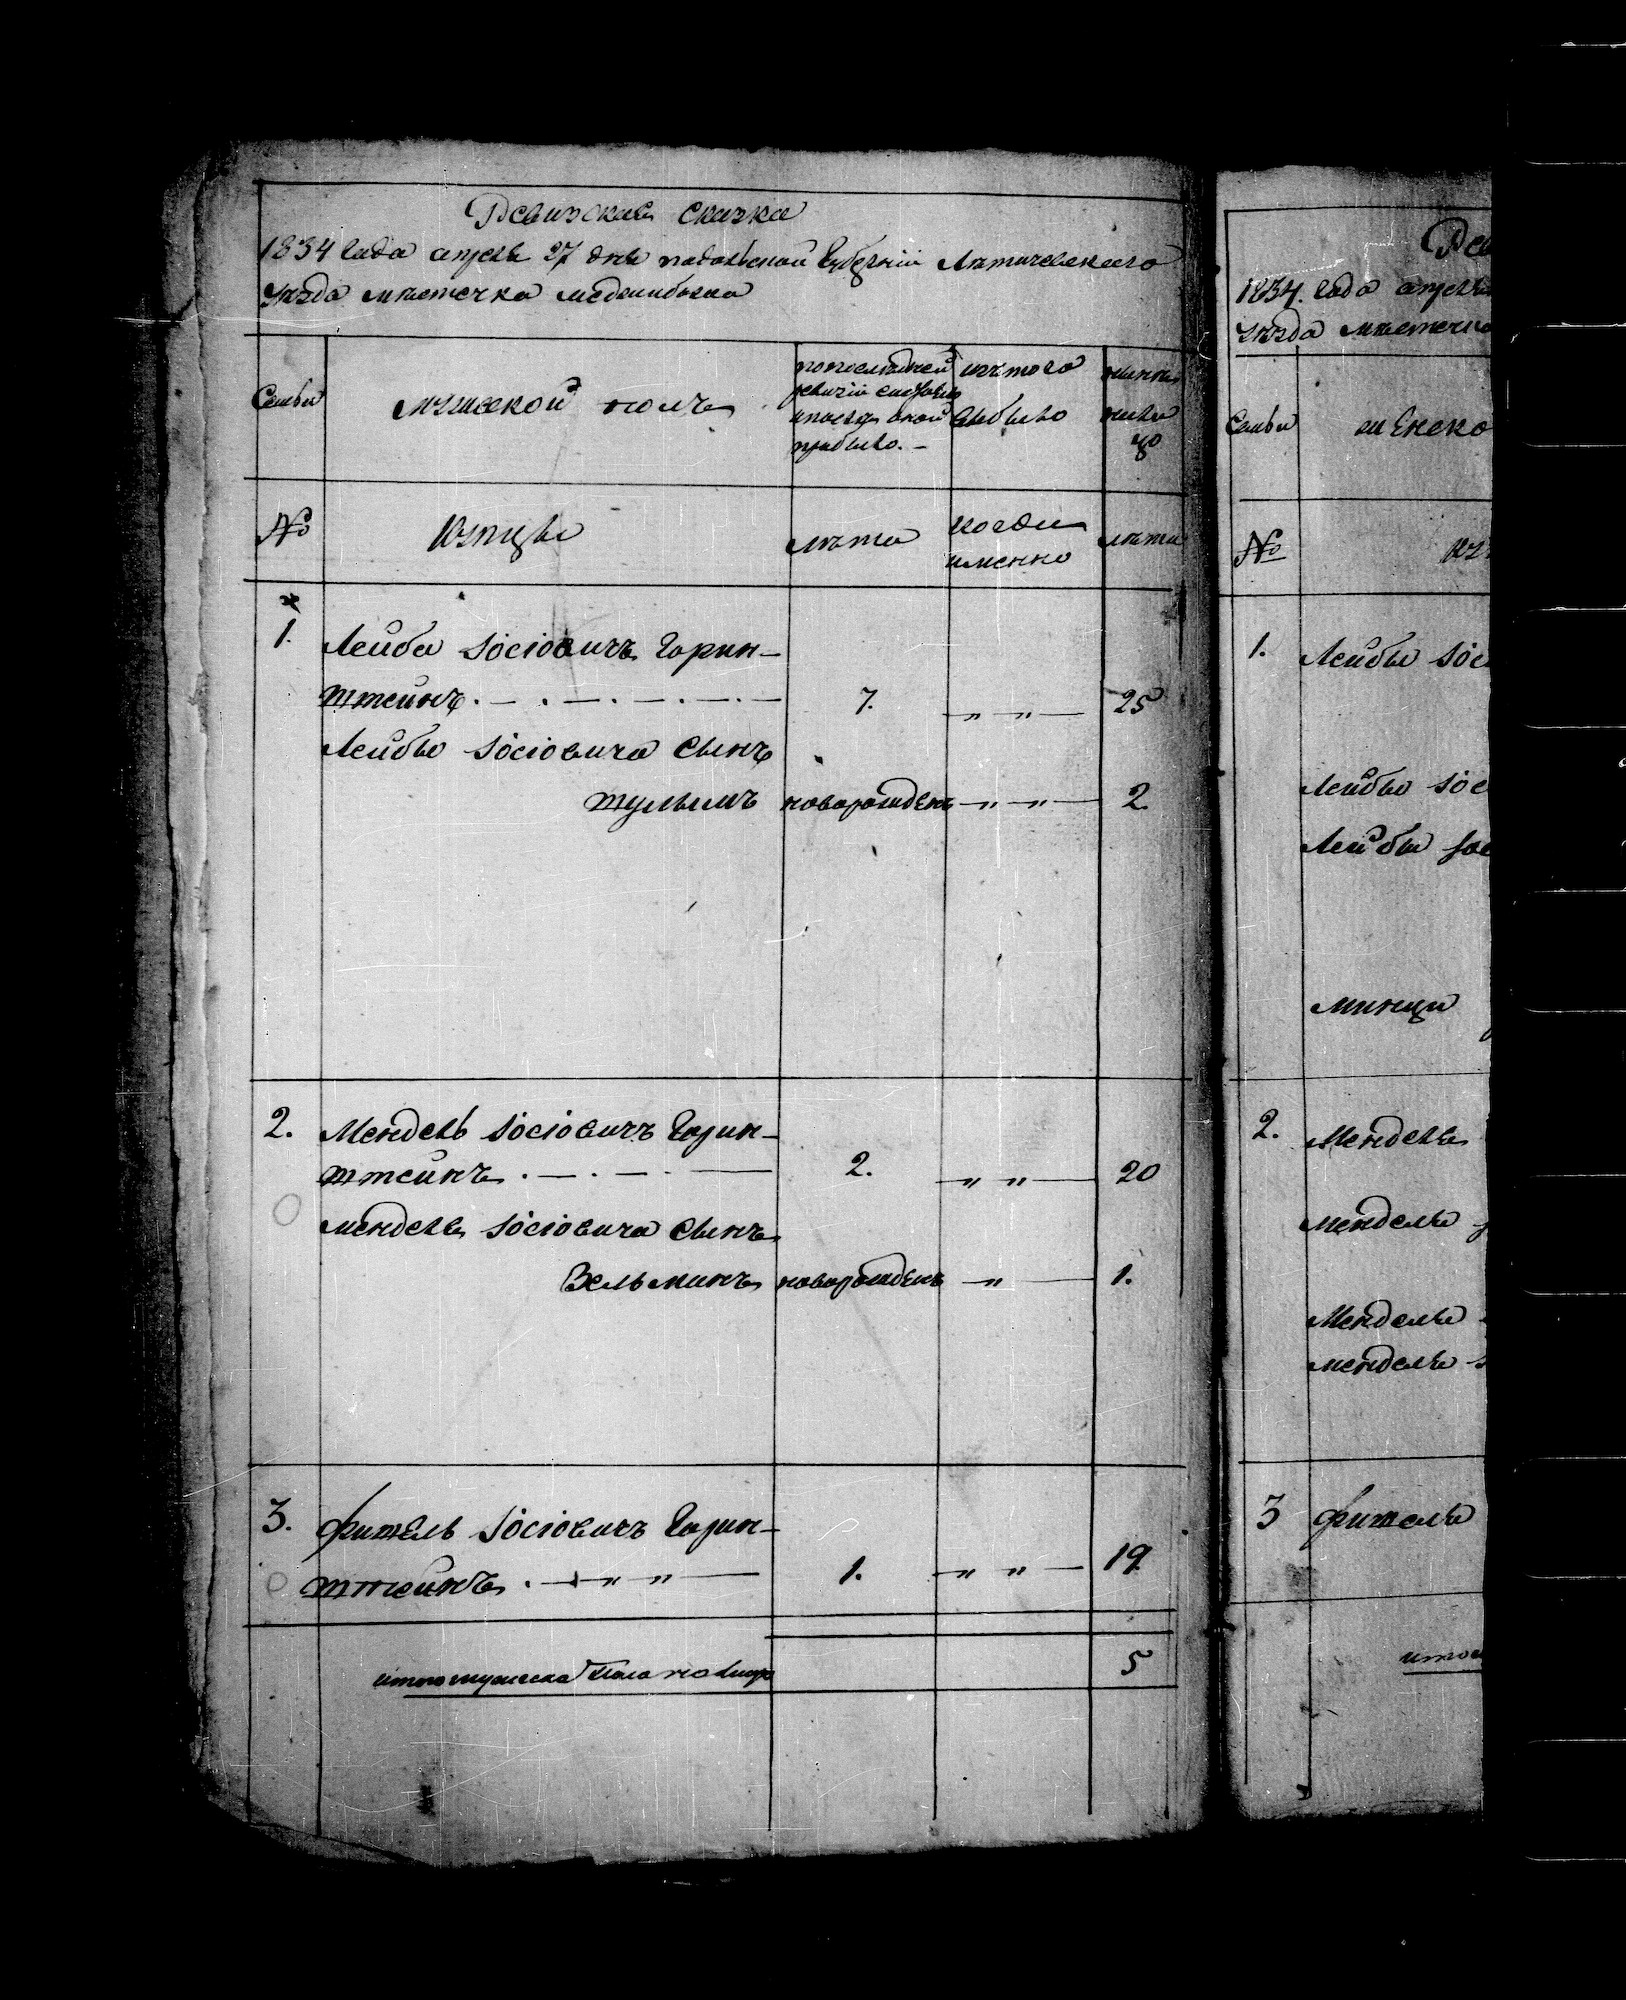 Ревизская сказка
1834 года апреля 27 дня подольской губерніи Летичевского
уезда местечка меджибожа
Семьи
мужеской полъ
по последней
ревизіи состояло
и после оной
прибыло. –
изъ того
выбыло
ныне
на ли
цо
№
Купцы
лета
когда
именно
лета
1.
Лейба Іосіовичъ Горин–
штейнъ
7.
" "
25
Лейбы Іосіовича сынъ
шулымъ
новорожденъ
" "
2
2.
Мендель Іосіовичъ Горин–
штейнъ
2.
" "
20
менделя Іосіовича сынъ
Зельманъ
новорожденъ
"
1.
3.
фишель Іосіовичъ Горин–
штейнъ. " "
1.
" "
19
итого мужеска пола на лицо
5
Рев
1834. года апреля
уезда местечка
Семьи
женско
№
куп
1.
Лейбы Іос
Лейбы Іос
Лейбы Іос
минци
2.
Менделя
менделя
Менделя
менделя
3
фишеля
итого